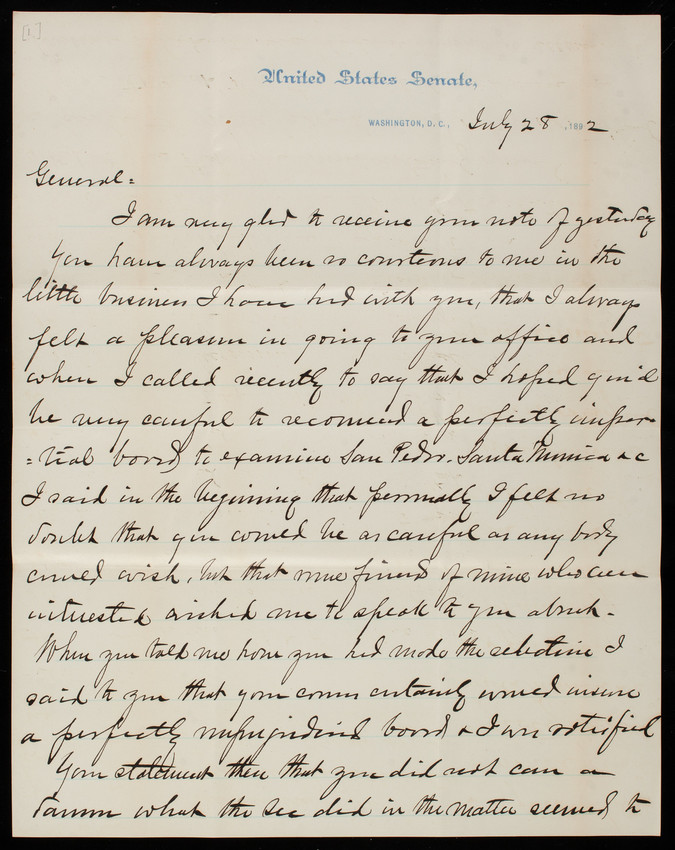 [1]
United States Senate,
WASHINGTON, D. C., July 28, 1892
General=
I am very glad to receive your note of yesterday
You have always been so courteous to me in the
little business I have had with you, that I always
felt a pleasure in going to your office and
when I called recently to say that I hoped you'd
be very careful to recomend a perfectly impar-
=tial board to examine San Pedro, Santa Monica &c
I said in the beginning that personally I felt no
doubt that you would be as careful as any body
could wish, but that some friends of mine who were
interested wished me to speak to you about.
When you told me how you had made the selection I
said to you that your course certainly would insure
a perfectly unprejudiced board & I was satisfied
Your statement then that you did not care a
damn what the Sec did in the matter seemed to